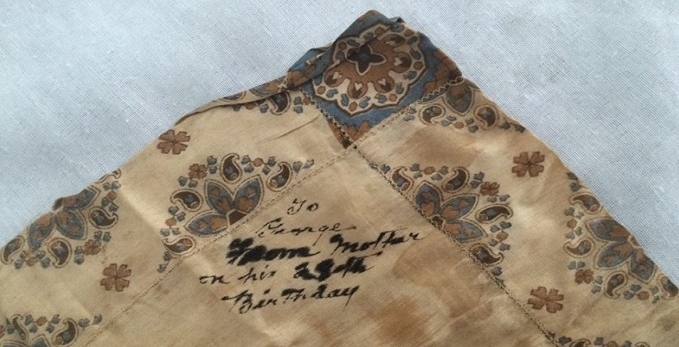 To
George
From Mother
on his 28th
Birthday